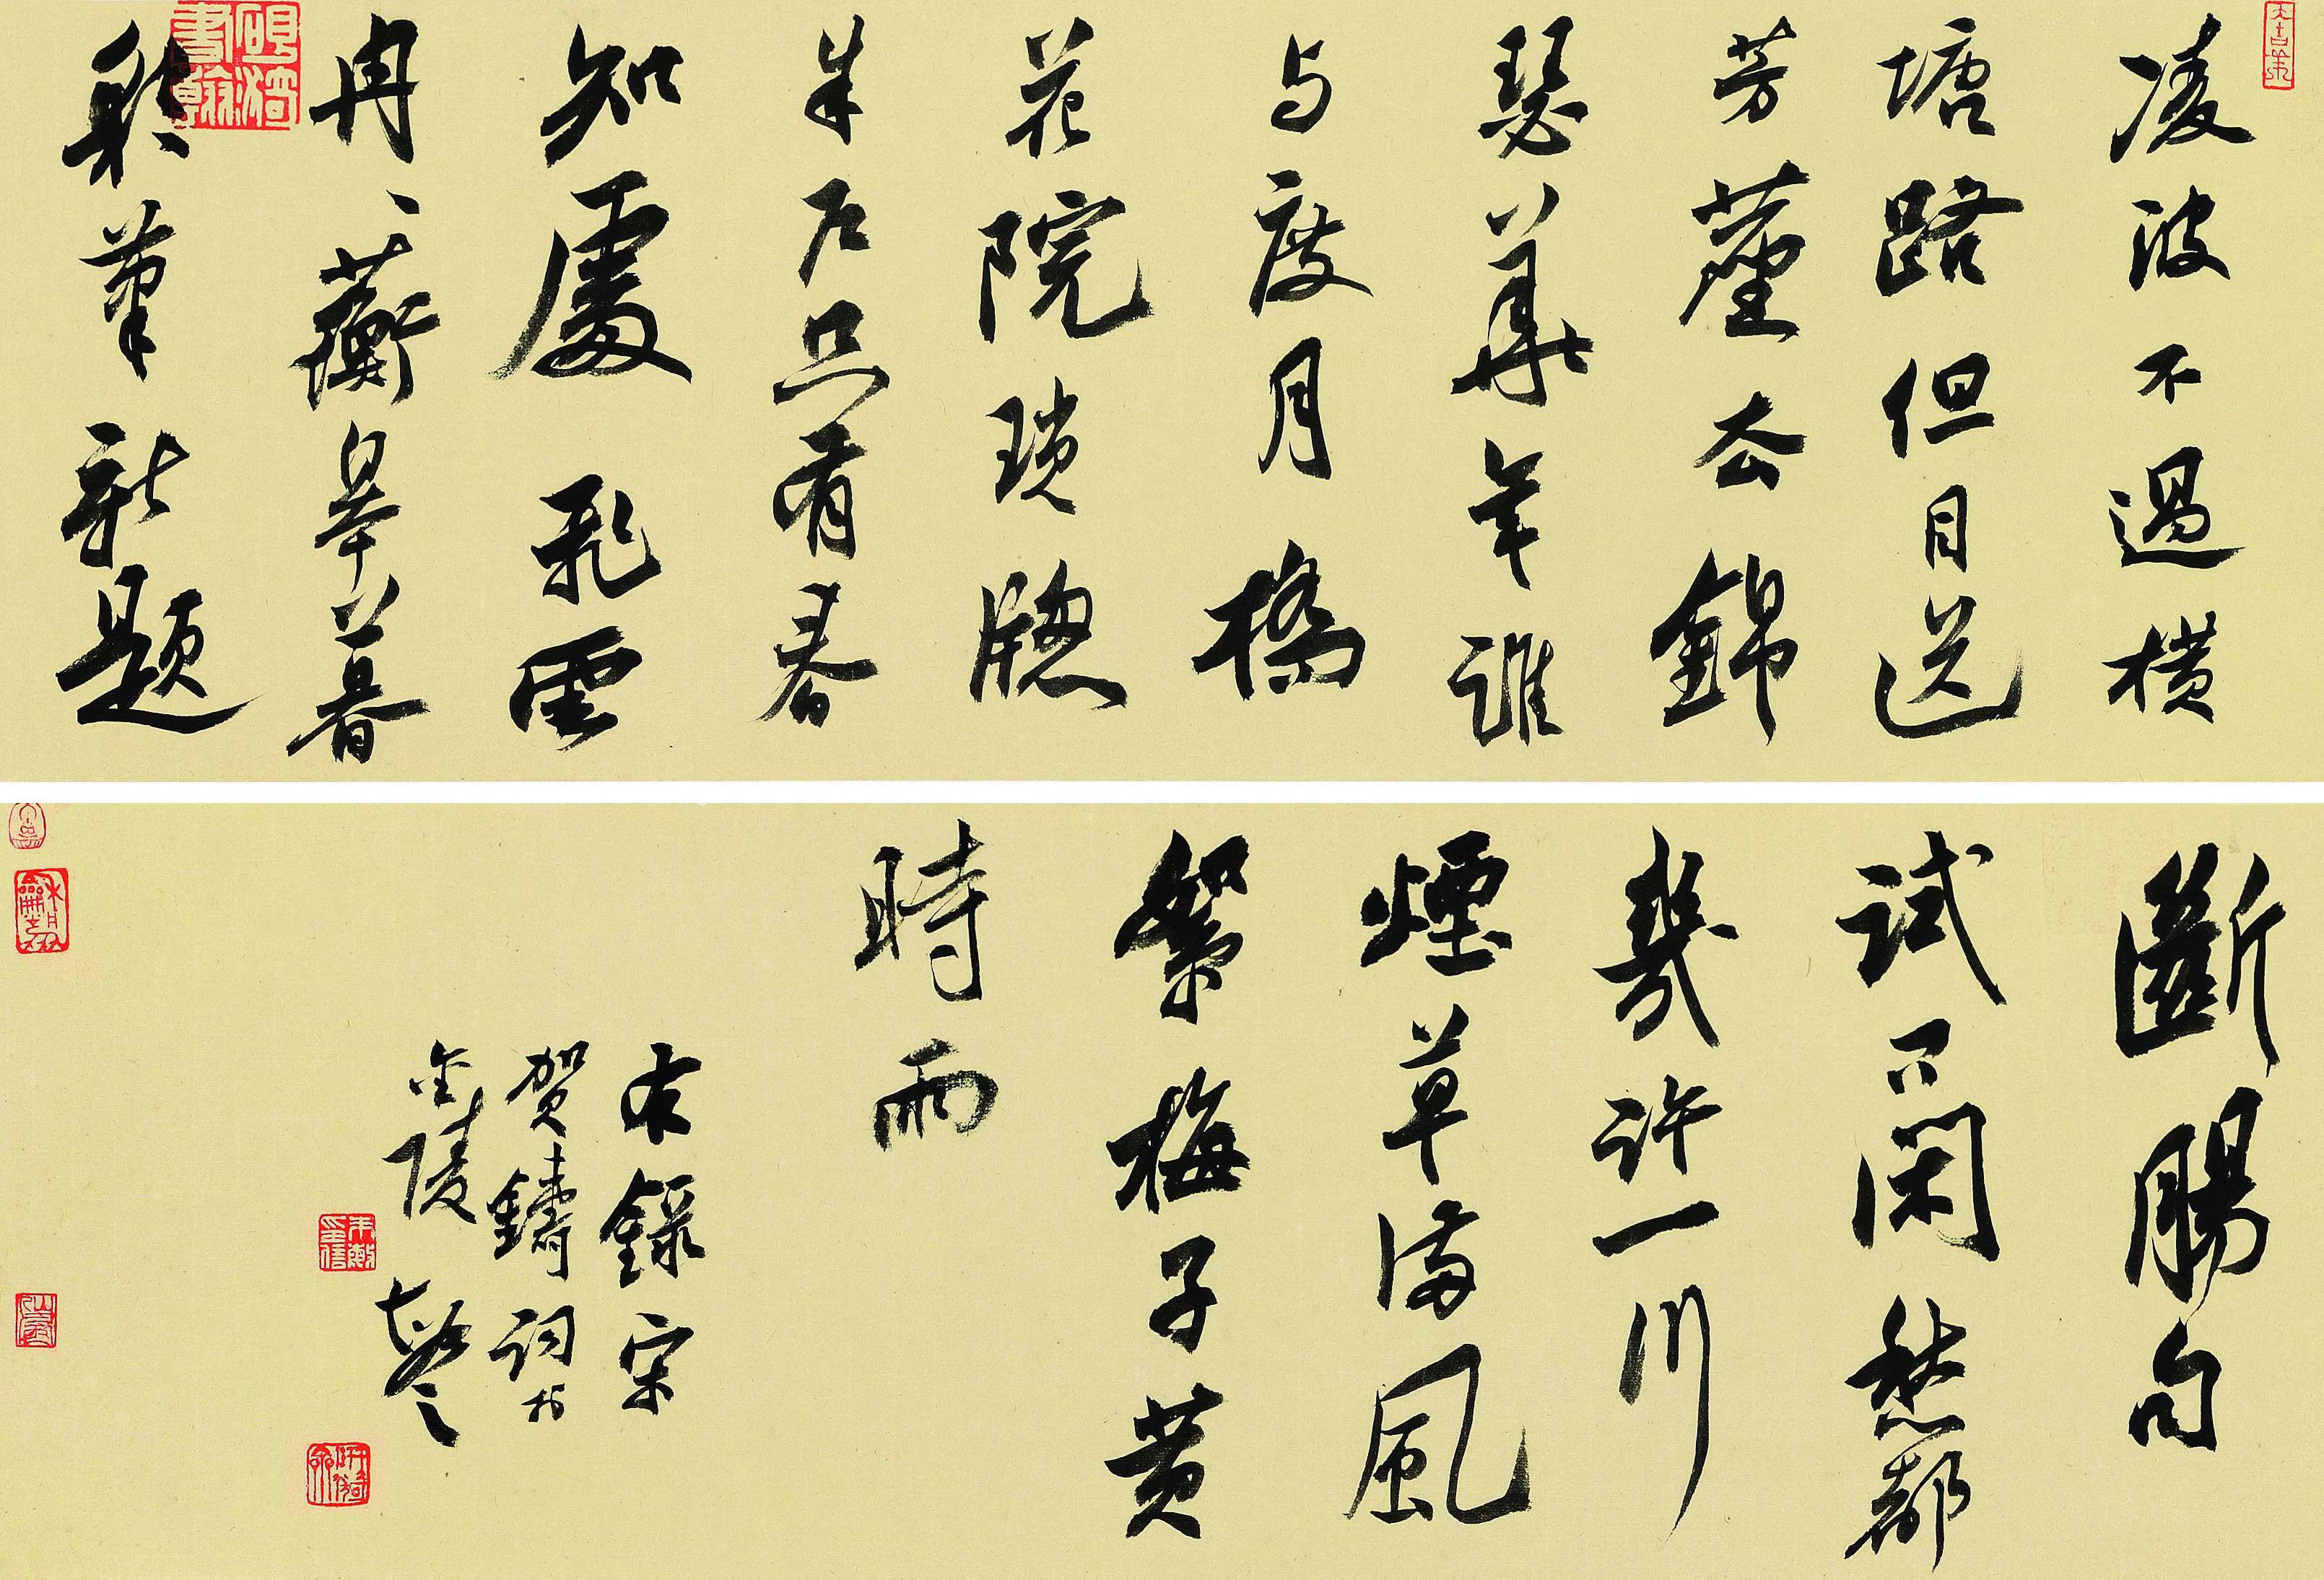 凌波不過橫
塘路但目送
芳塵去錦
瑟華年誰
与度月橋
花院瑣牕
朱戶只有春
知處飛雲
冉、蘅皋暮
彩筆新題
斷腸句
試問閑愁都
幾許一川
煙草滿風
絮梅子黃
時雨
右錄宋
賀鑄詞於
金陵